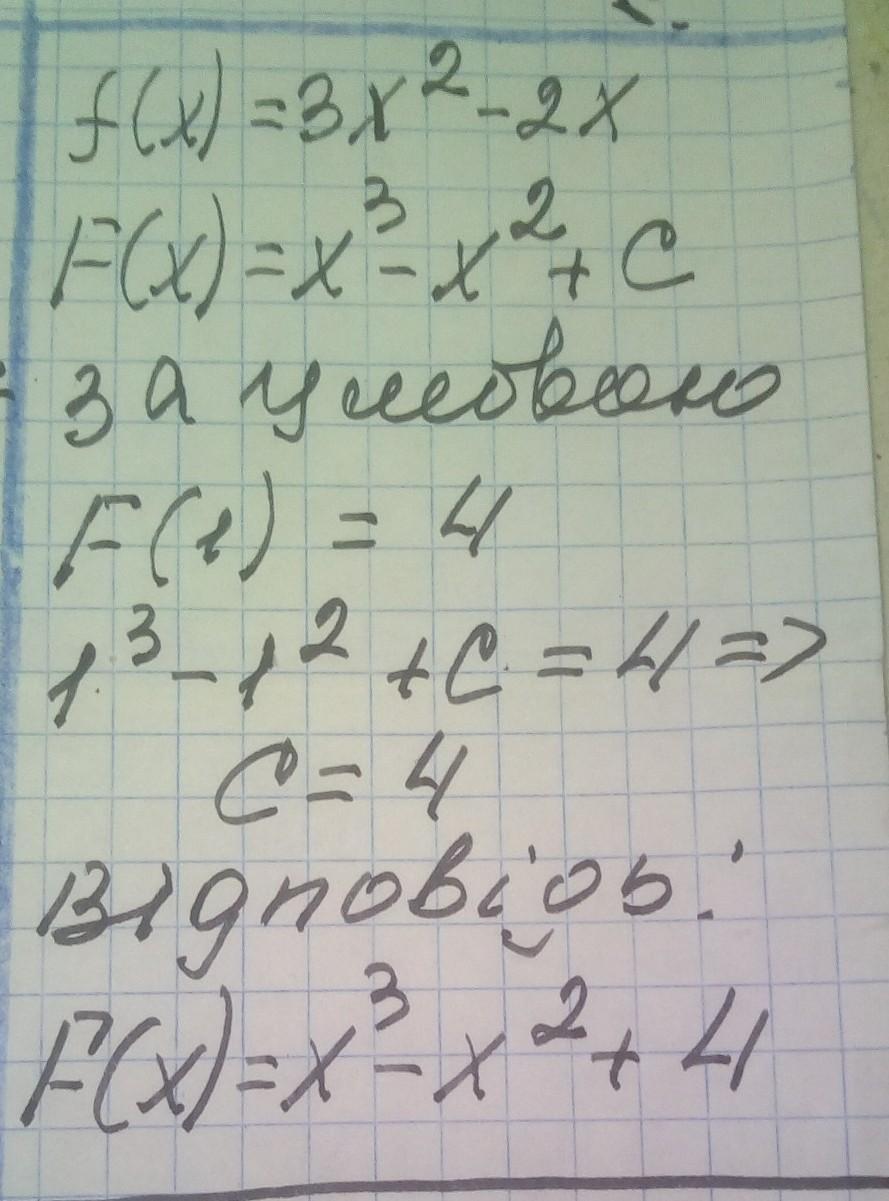 f(x) = 3x² - 2x
F(x) = x³ - x² + C
За умовою
F(1) = 4
1³ - 1² + C = 4 =>
C = 4
Відповідь:
F(x) = x³ - x² + 4